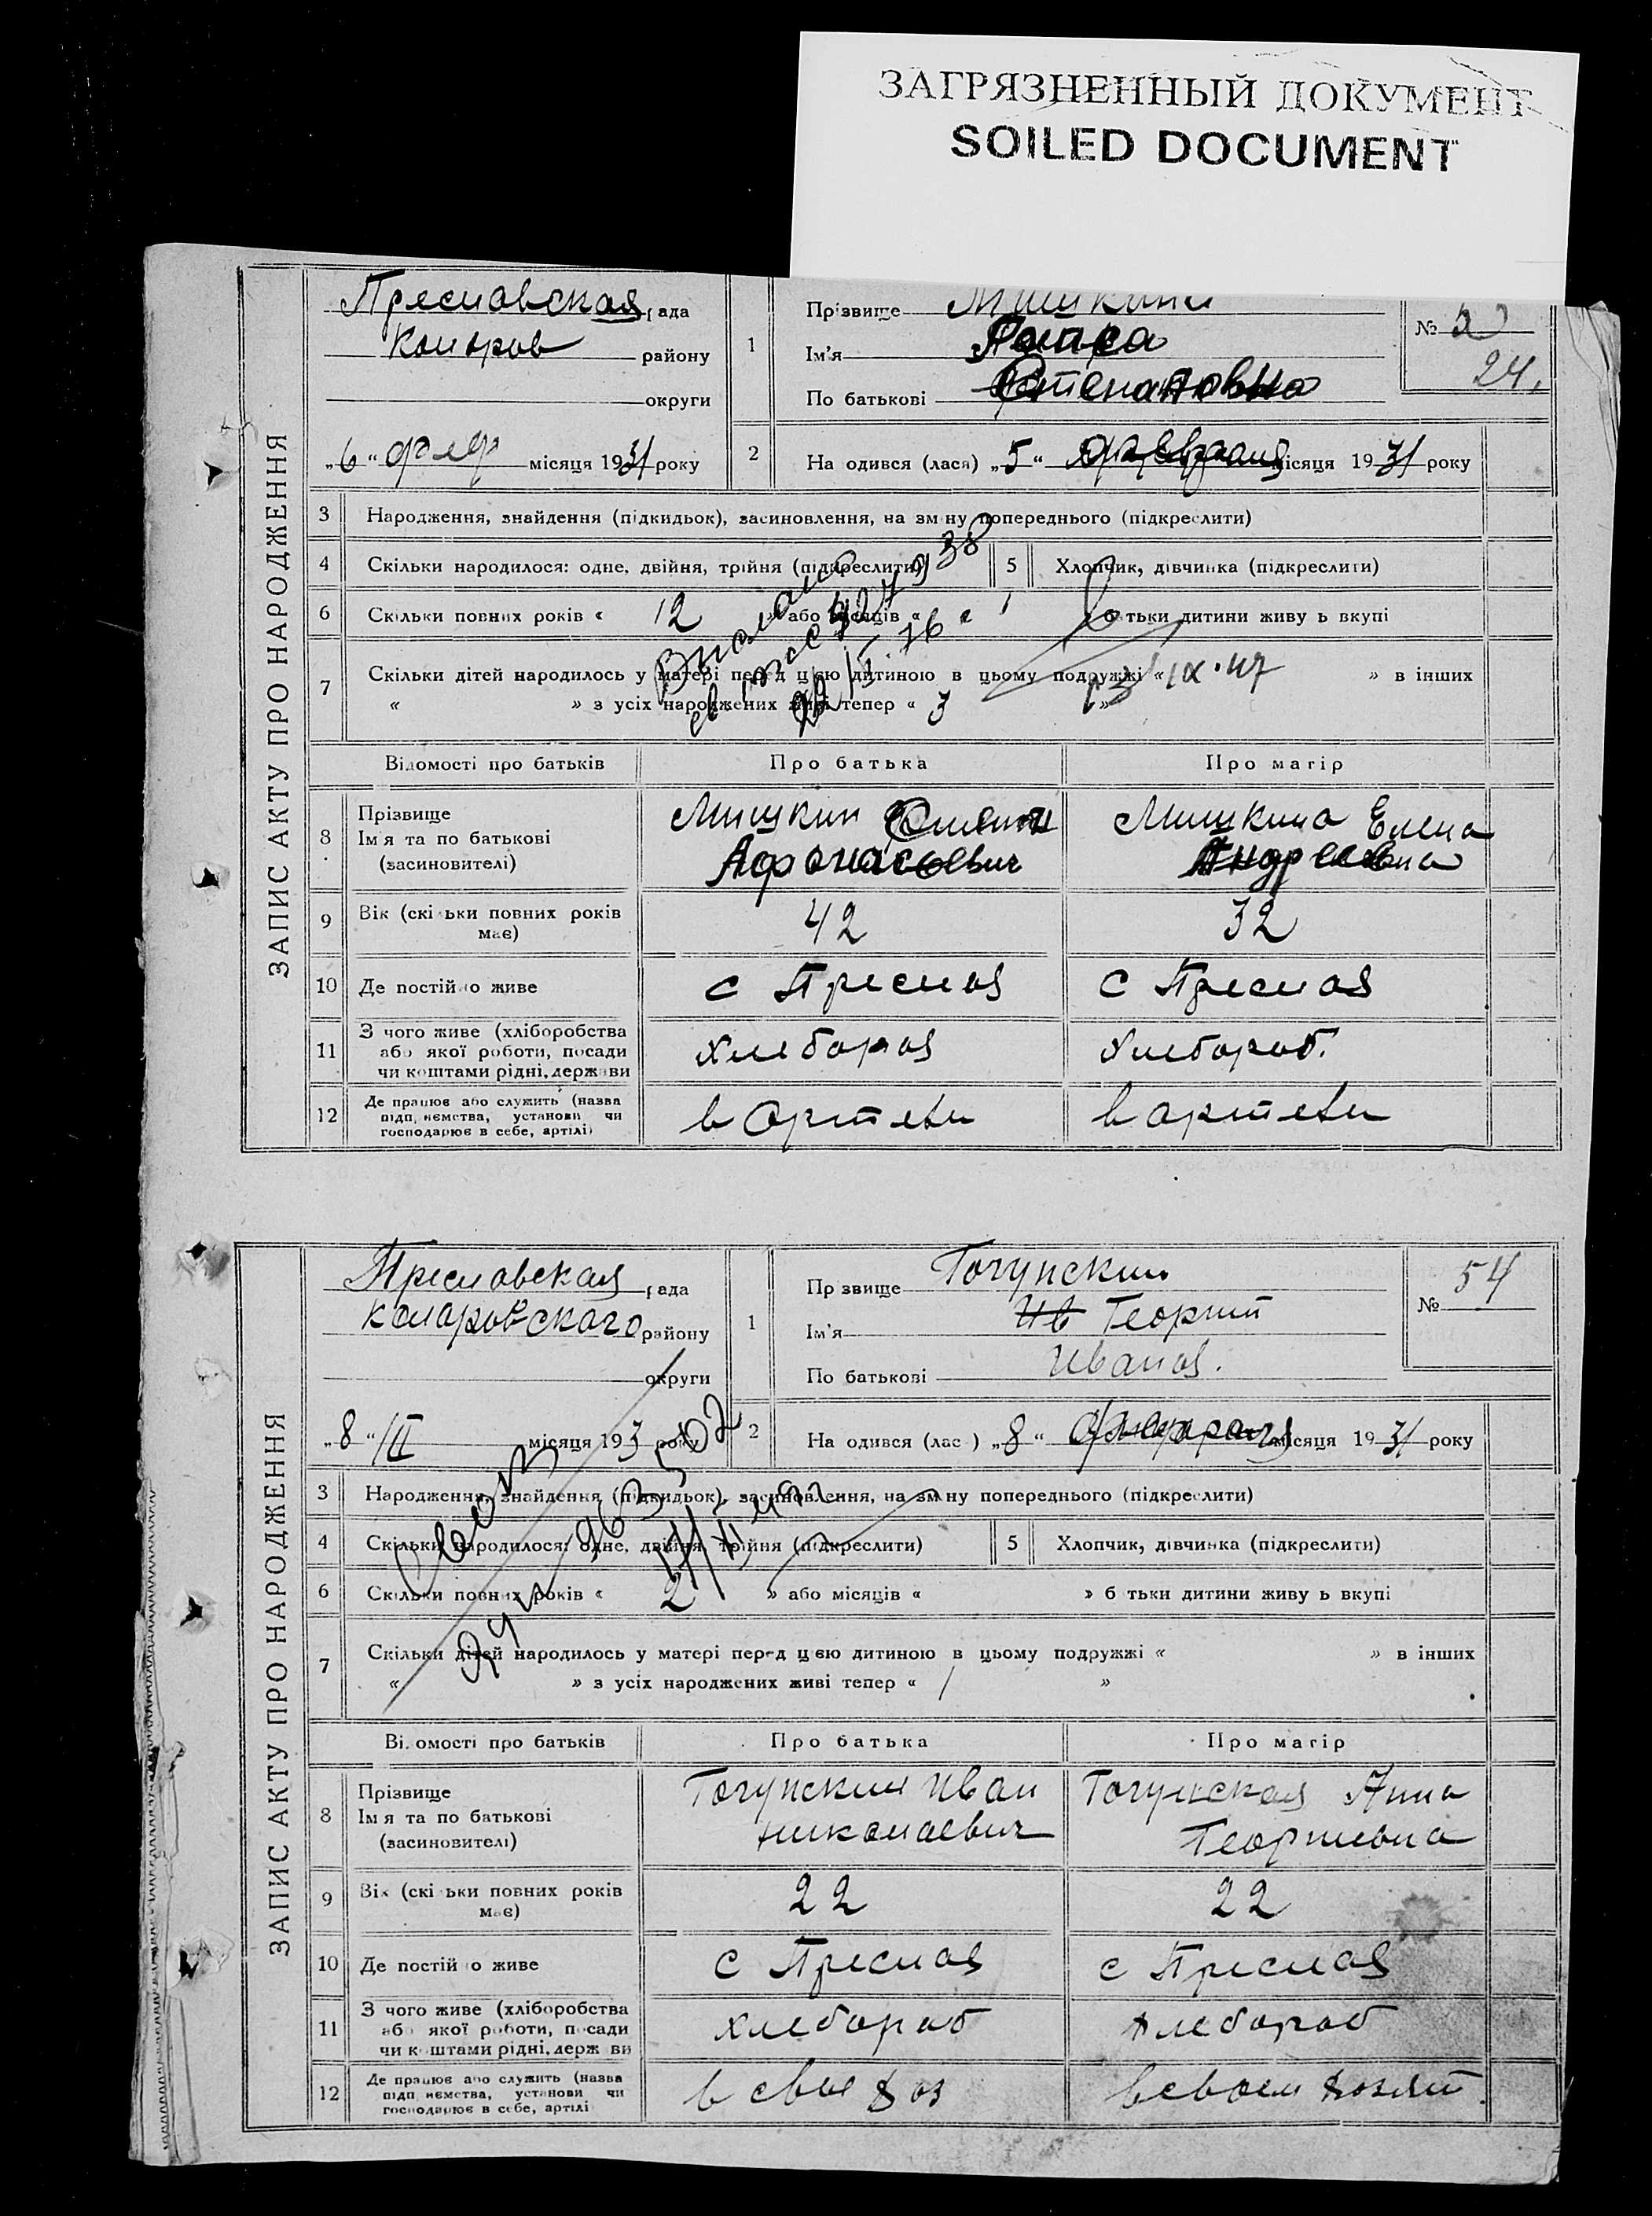 ЗАГРЯЗНЕННЫЙ ДОКУМЕНТ
SOILED DOCUMENT
ЗАПИС АКТУ ПРО НАРОДЖЕННЯ
Пресновская рада
району
округи
„6“ февр місяця 1931 року
1
Прізвище Мишкина
Ім'я
По батькові Степановна
№
24.
2
На одився (лася) „5“ февраля місяця 1931 року
3 Народження, знайдення (підкидьок), засиновлення, на зміну попереднього (підкреслити)
4 Скільки народилося: одне, двійня, трійня (підкреслити)
5 Хлопчик, дівчинка (підкреслити)
6 Скільки повних років « 12 » або місяців « батьки дитини живу ь вкупі
7 Скільки дітей народилось у матері перед цією дитиною в цьому подружжі « » в інших
« » з усіх народжених живі тепер « 3 »
Відомості про батьків
Про батька
Про матір
8
Прізвище
Ім'я та по батькові
(засиновителі)
Мишкин
Афанасьевич
Мишкина Елена
Андреевна
9
Вік (скільки повних років
має)
42
32
10 Де постійно живе
с Пресная
с Пресная
11
З чого живе (хліборобства
або якої роботи, посади
чи коштами рідні, держави
хлебороб
хлебороб.
12
Де працює або служить (назва
підп иємства, установи чи
господарює в себе, артілі)
в артели
в артели
ЗАПИС АКТУ ПРО НАРОДЖЕННЯ
Пресновская рада
району
округи
„8“/II місяця 193 року
1
Пр звище Гогунский
Ім'я Ив Георгий
По батькові Иванов.
№ 54
2
На одився (лас ) „8“ февраля місяця 1931 року
3 Народження, знайдення (підкидьок), засиновлення, на зміну попереднього (підкреслити)
4 Скільки народилося: одне, двійня, трійня (підкреслити)
5 Хлопчик, дівчинка (підкреслити)
6 Скільки повних років « 2 » або місяців « » б тьки дитини живу ь вкупі
7 Скільки дітей народилось у матері перед цією дитиною в цьому подружжі « » в інших
« » з усіх народжених живі тепер « 1 »
Ві. омості про батьків
Про батька
Про матір
8
Прізвище
Ім'я та по батькові
(засиновителі)
Гогунский Иван
Николаевич
Гогунская Анна
Георгиевна
9
Вік (скі ьки повних років
має)
22
22
10 Де постій о живе
с Пресная
с Пресная
11
З чого живе (хліборобства
або якої роботи, посади
чи коштами рідні, держ ви
хлебороб
хлебороб
12
Де працює або служить (назва
підп иємства, установи чи
господарює в себе, артілі
в свое хоз
в своем хозяй